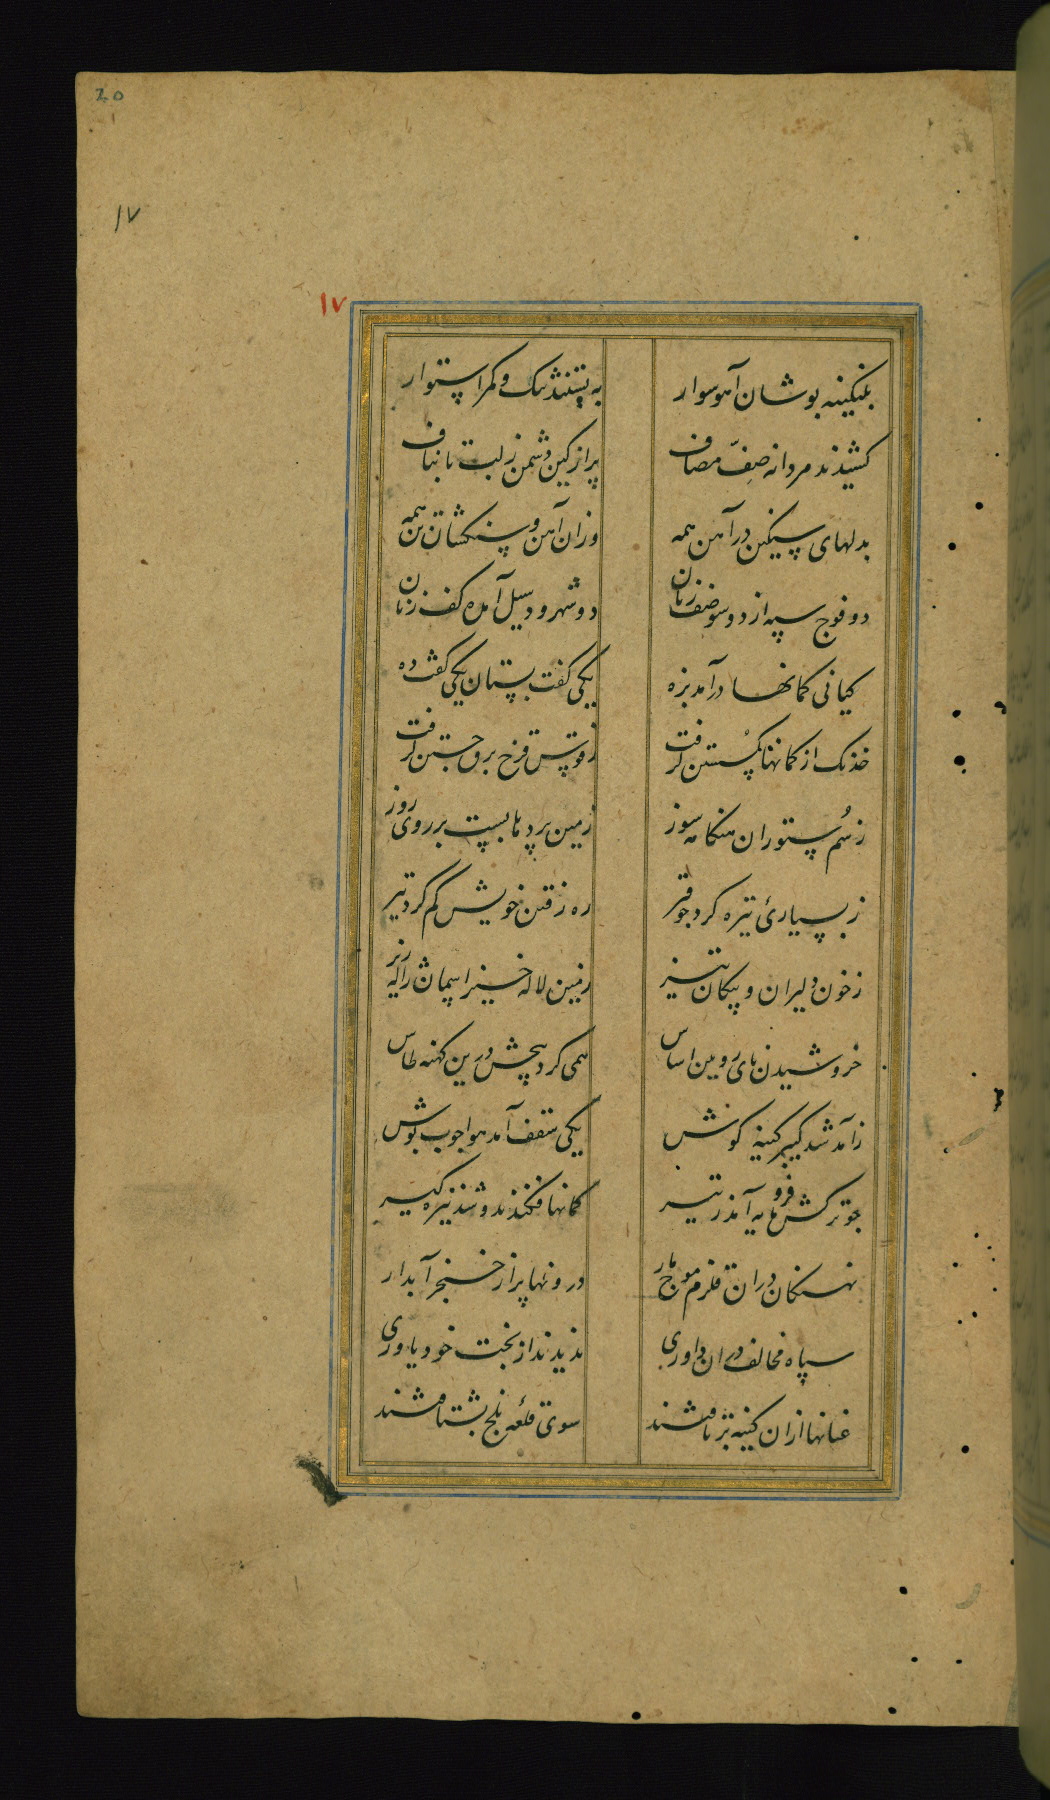 20
۱۷
۱۷
پوشان آهو سوار
به بستند تنگ و کمر استوار
کشیدند مردانه صفّ مصاف
پر از کین دشمن ز لب تا بناف
بدلهای سنکین در آهن همه
وزان آهن و سنکشان تن همه
دو فوج سپه از دو سو صف زنان
دو شهرود سیل آمده کف زنان
کیانی کمانها درآمد بزه
یکی کفت بستان یکی کفت ده
خدنک از کمانها جستن کرفت
ز قوس قزح برق جستن کرفت
ز سُم ستوران هنکامه سوز
زمین پرده بست بر روی روز
ز بسیاریٔ تیره کرد
ره رفتن خویش کم کرد تیر
ز خون دلیران و پیکان تیز
زمین لاله خیز آسمان ژاله ریز
خروشیدن نای رویین اساس
همی کرد پیچش درین کهنه طاس
ز آمد شد کیبر کینه کوش
یکی سقف آمد هوا چوب پوش
چو ترکش فرو مایه آمد ز تیر
کمانها فکندند و شد نیزه کیر
نهنکان دران قلزم موج
درونها پر از خنجر آبدار
سپاه مخالف دران داوری
ندیدند از بخت خود یاوری
عنانها ازان کینه برتافتند
سوی قلعه بلخ بشتافتند